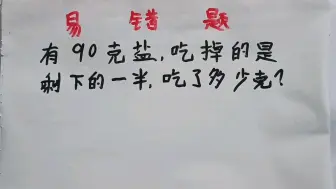 易 错 题
有90克盐,吃掉的是
剩下的一半,吃了多少克?